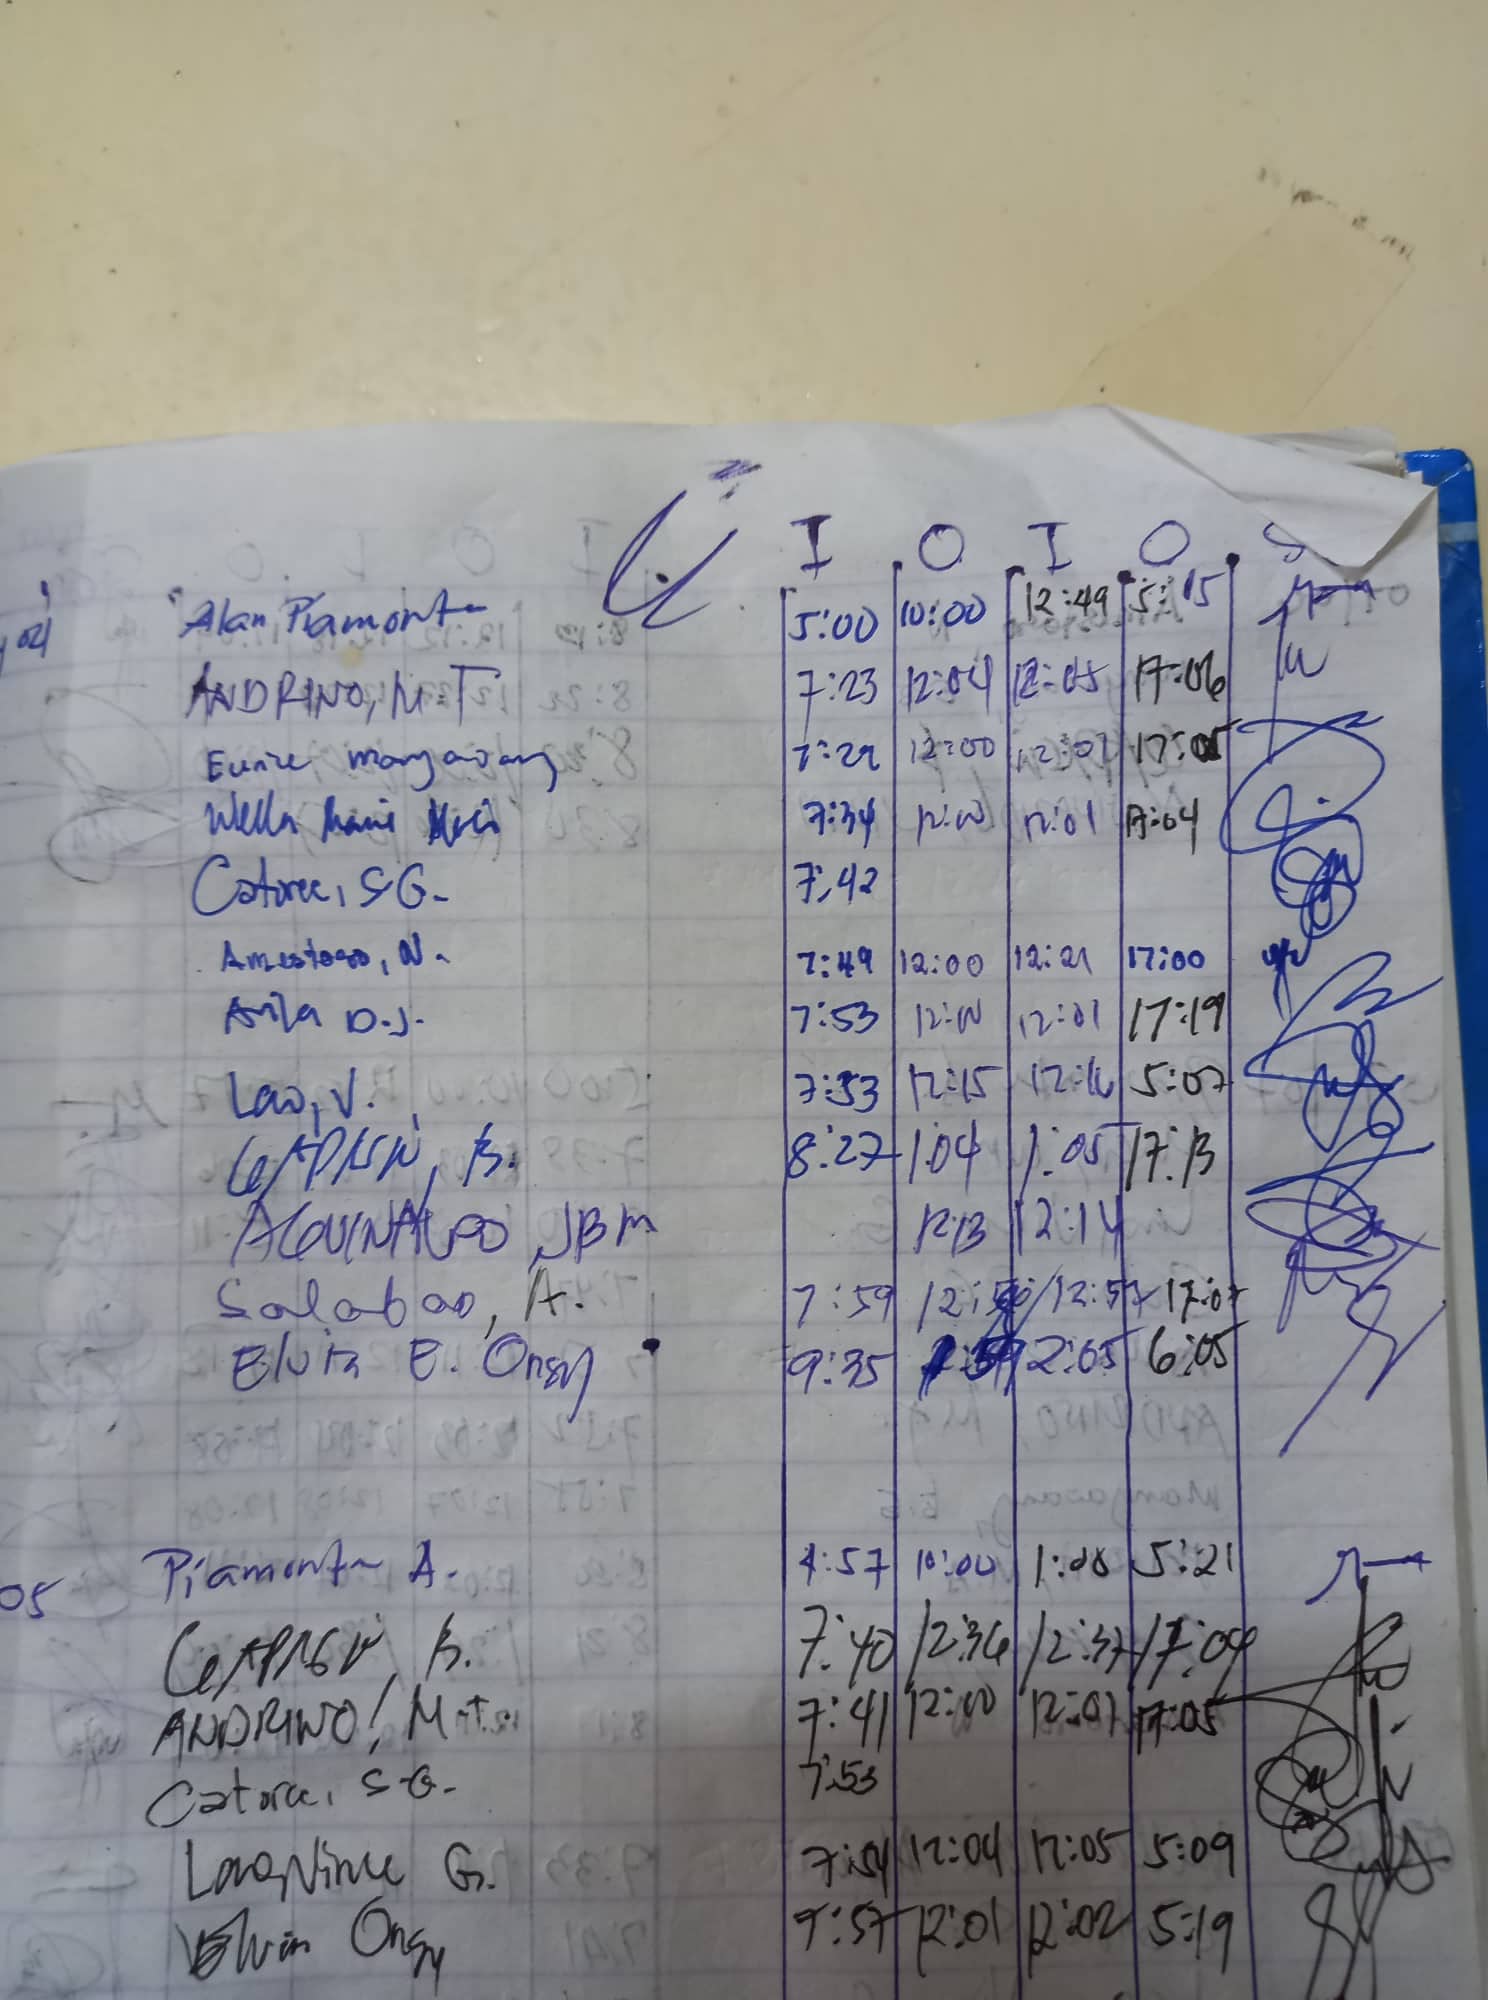 I O I O
04 Alan Piamonte 5:00 10:00 12:49 5:15
ANDRINO, M.T 7:23 12:04 12:05 17:06
Eunice Mangaoang 7:29 12:00 12:01 17:05
Wella Marie 7:34 12:00 12:01 17:04
Catorce, SG. 7:42
Amestoso, N. 7:49 12:00 12:21 17:00
Avila D.J. 7:53 12:00 12:01 17:19
Lao, V. 7:53 12:15 12:16 5:07
B. 8:27 1:04 1:05 17:13
AGUINALDO JBM 12:13 12:14
Salabao, A. 7:59 12:56 12:57 17:07
Elvin E. Ongy 9:35 2:05 6:05
05 Piamonte A. 4:57 10:00 1:00 5:21
B. 7:40 12:36 12:37 17:04
ANDRINO, M.T. 7:41 12:00 12:01 17:05
Catorce, S.G. 7:53
Lao, Vince G. 7:54 12:04 12:05 5:09
Elvin Ongy 9:57 12:01 12:02 5:19